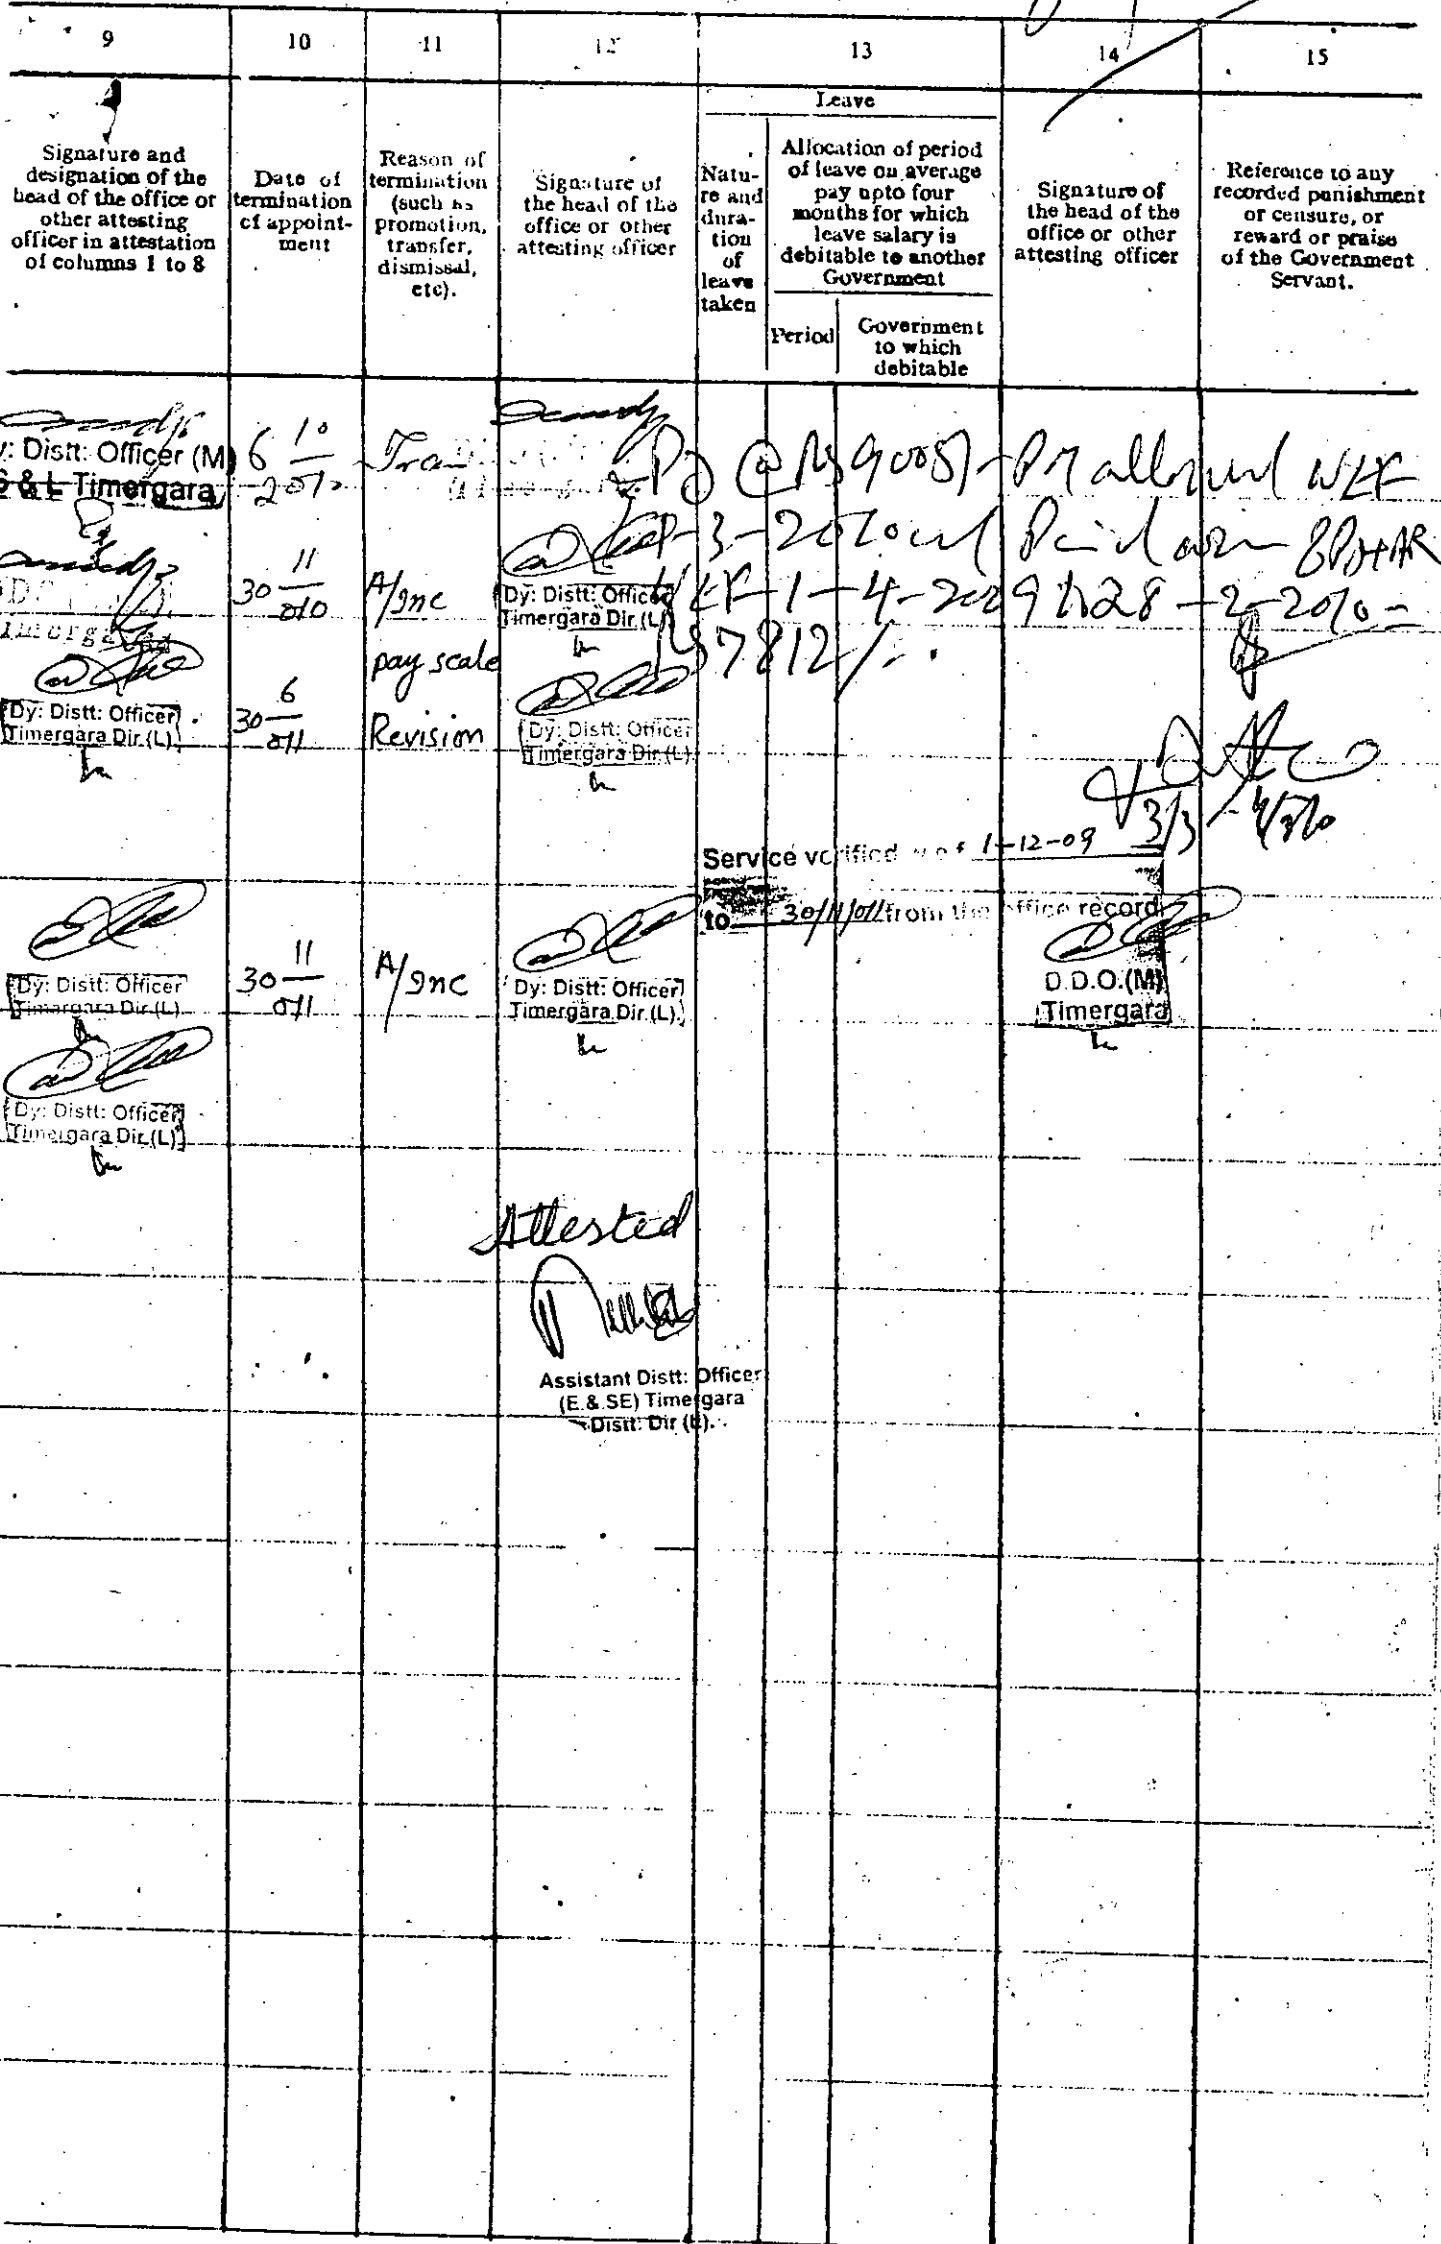 9 10 11 12 13 14 15
Leave
Signature and
designation of the
head of the office or
other attesting
officer in attestation
of columns 1 to 8
Date of
termination
of appoint-
ment
Reason of
termination
(such as
promotion,
transfer,
dismissal,
etc).
Signature of
the head of the
office or other
attesting officer
Natu-
re and
dura-
tion
of
leave
taken
Allocation of period
of leave on average
pay upto four
months for which
leave salary is
debitable to another
Government
Period
Government
to which
debitable
Signature of
the head of the
office or other
attesting officer
Reference to any
recorded punishment
or censure, or
reward or praise
of the Government
Servant.
y: Distt: Officer (M)
S & L Timergara
6 10/2010
@ Rs 9005/- PM allowed WEF
-3-2010 and Paid
WEF-1-4-2009 to 28-2-2010 =
Rs 7812/-.
30 11/010
A/Inc
Dy: Distt: Officer
Timergara Dir (L)
pay scale
Revision
Dy: Distt: Officer
Timergara Dir (L)
30 6/011
Dy: Distt: Officer
Timergara Dir (L)
3/3
Service verified w.e.f 1-12-09
to 30/11/011 from the office record
D.D.O.(M)
Timergara
Dy: Distt: Officer
Timergara Dir (L)
30 11/011
A/Inc
Dy: Distt: Officer
Timergara Dir (L)
Dy: Distt: Officer
Timergara Dir (L)
Attested
Assistant Distt: Officer
(E & SE) Timergara
Distt: Dir (L).